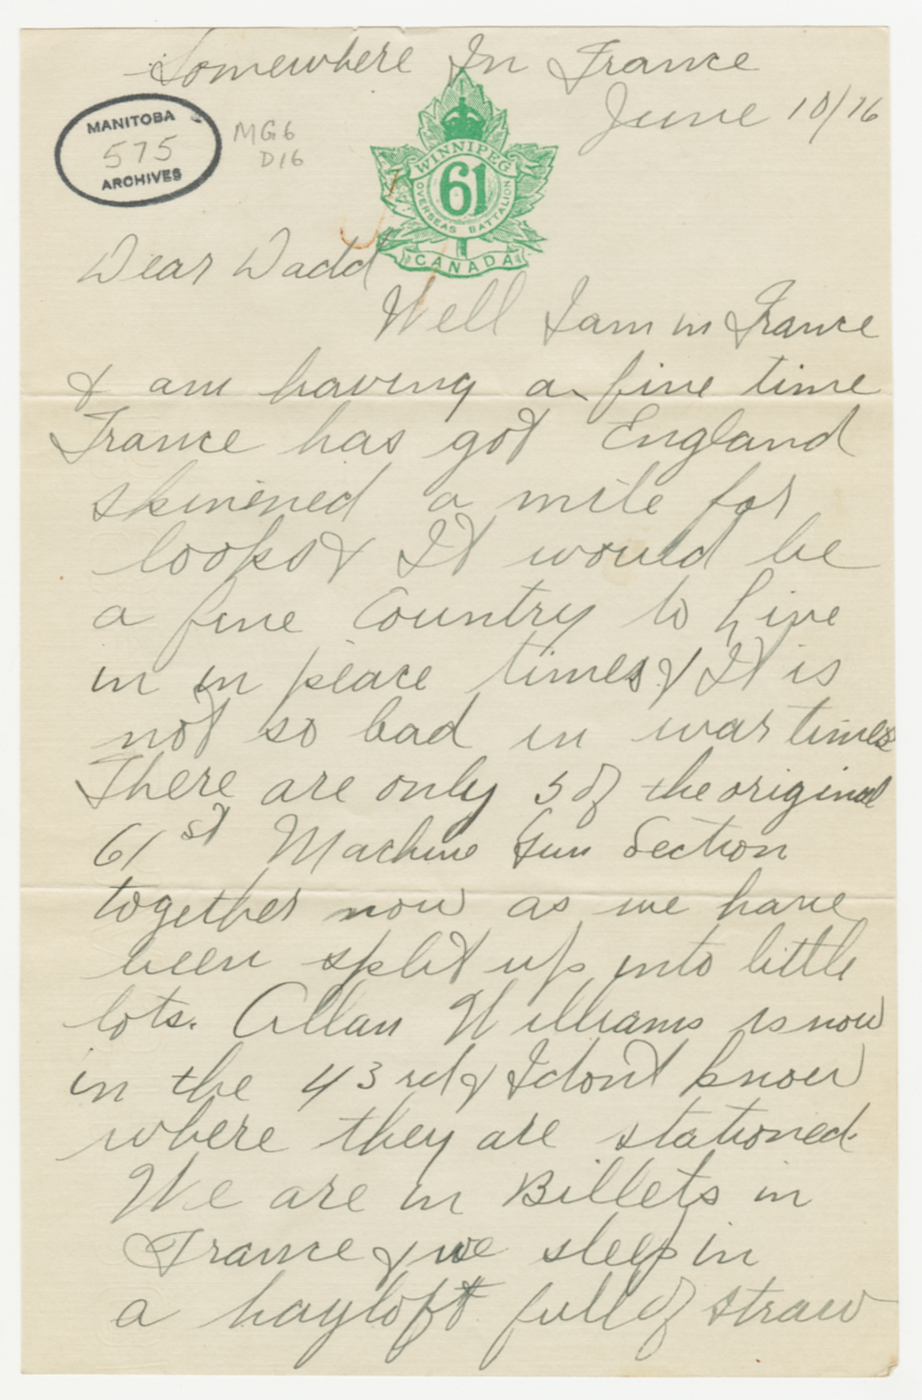 Somewhere In France
June 10/16
MANITOBA
575
ARCHIVES
MG6
D16
WINNIPEG
61
OVERSEAS BATTALION
CANADA
Dear Dadd
Well I am in France
& am having a fine time
France has got England
skinened a mile for
looks & It would be
a fine Country to live
in in peace times & It is
not so bad in war times
There are only 5 of the original
61st Machine Gun Section
together now as we have
been split up into little
lots. Allan Williams is now
in the 43rd & I dont know
where they are stationed.
We are in Billets in
France & we sleep in
a hayloft full of straw